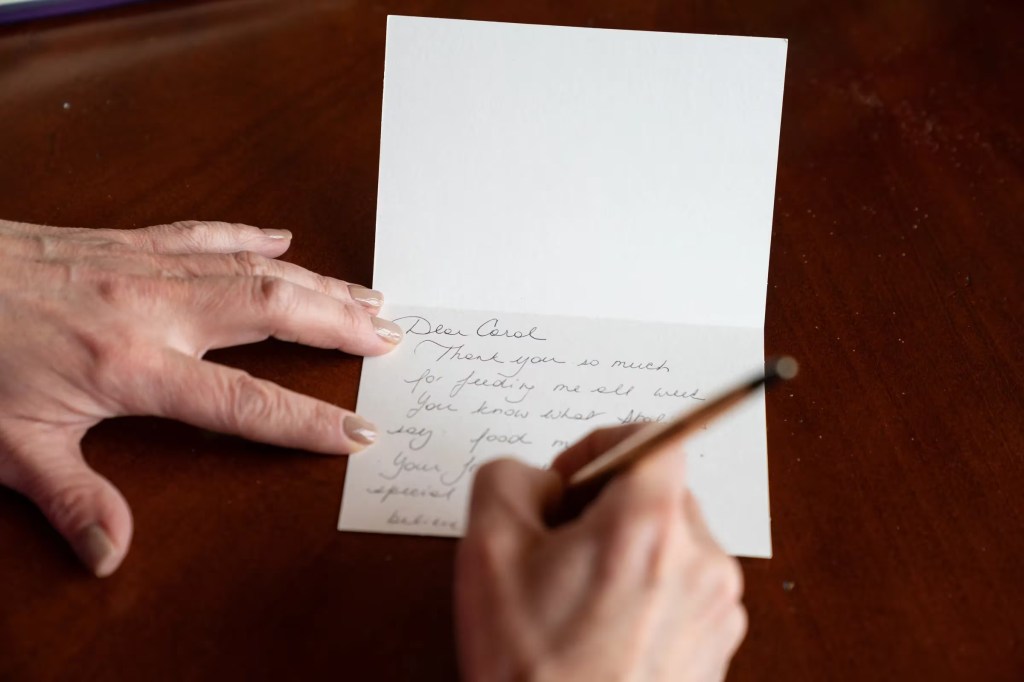 Dear Carol
Thank you so much
for feeding me all week
You know what
say food
Your
special
believe